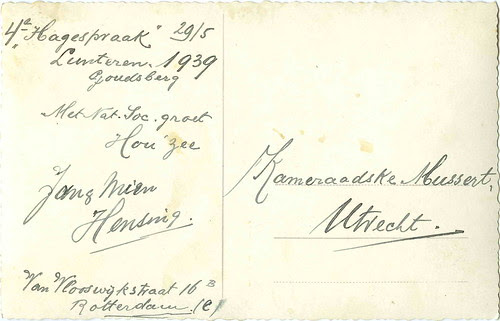 4e "Hagespraak" 29/5
Lunteren. 1939
Goudsberg
Met Nat. Soc. groet
Hou' zee
Jan & Mien
Hensing.
Van Vlooswijkstraat 16 B
Rotterdam. (C)
Kameraadske Mussert,
Utrecht.